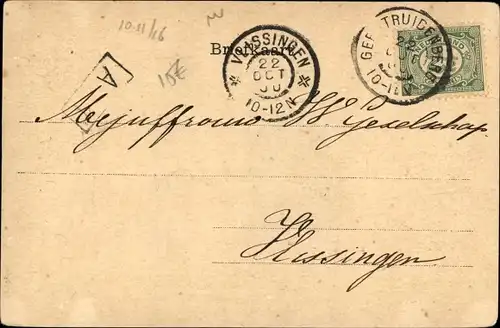 10-11/16
Briefkaart
VLISSINGEN
22
OCT
00
10-12N
GEERTRUIDENBERG
22
10-11
A
15€
Mejuffrouw W Geselschap
Vlissingen